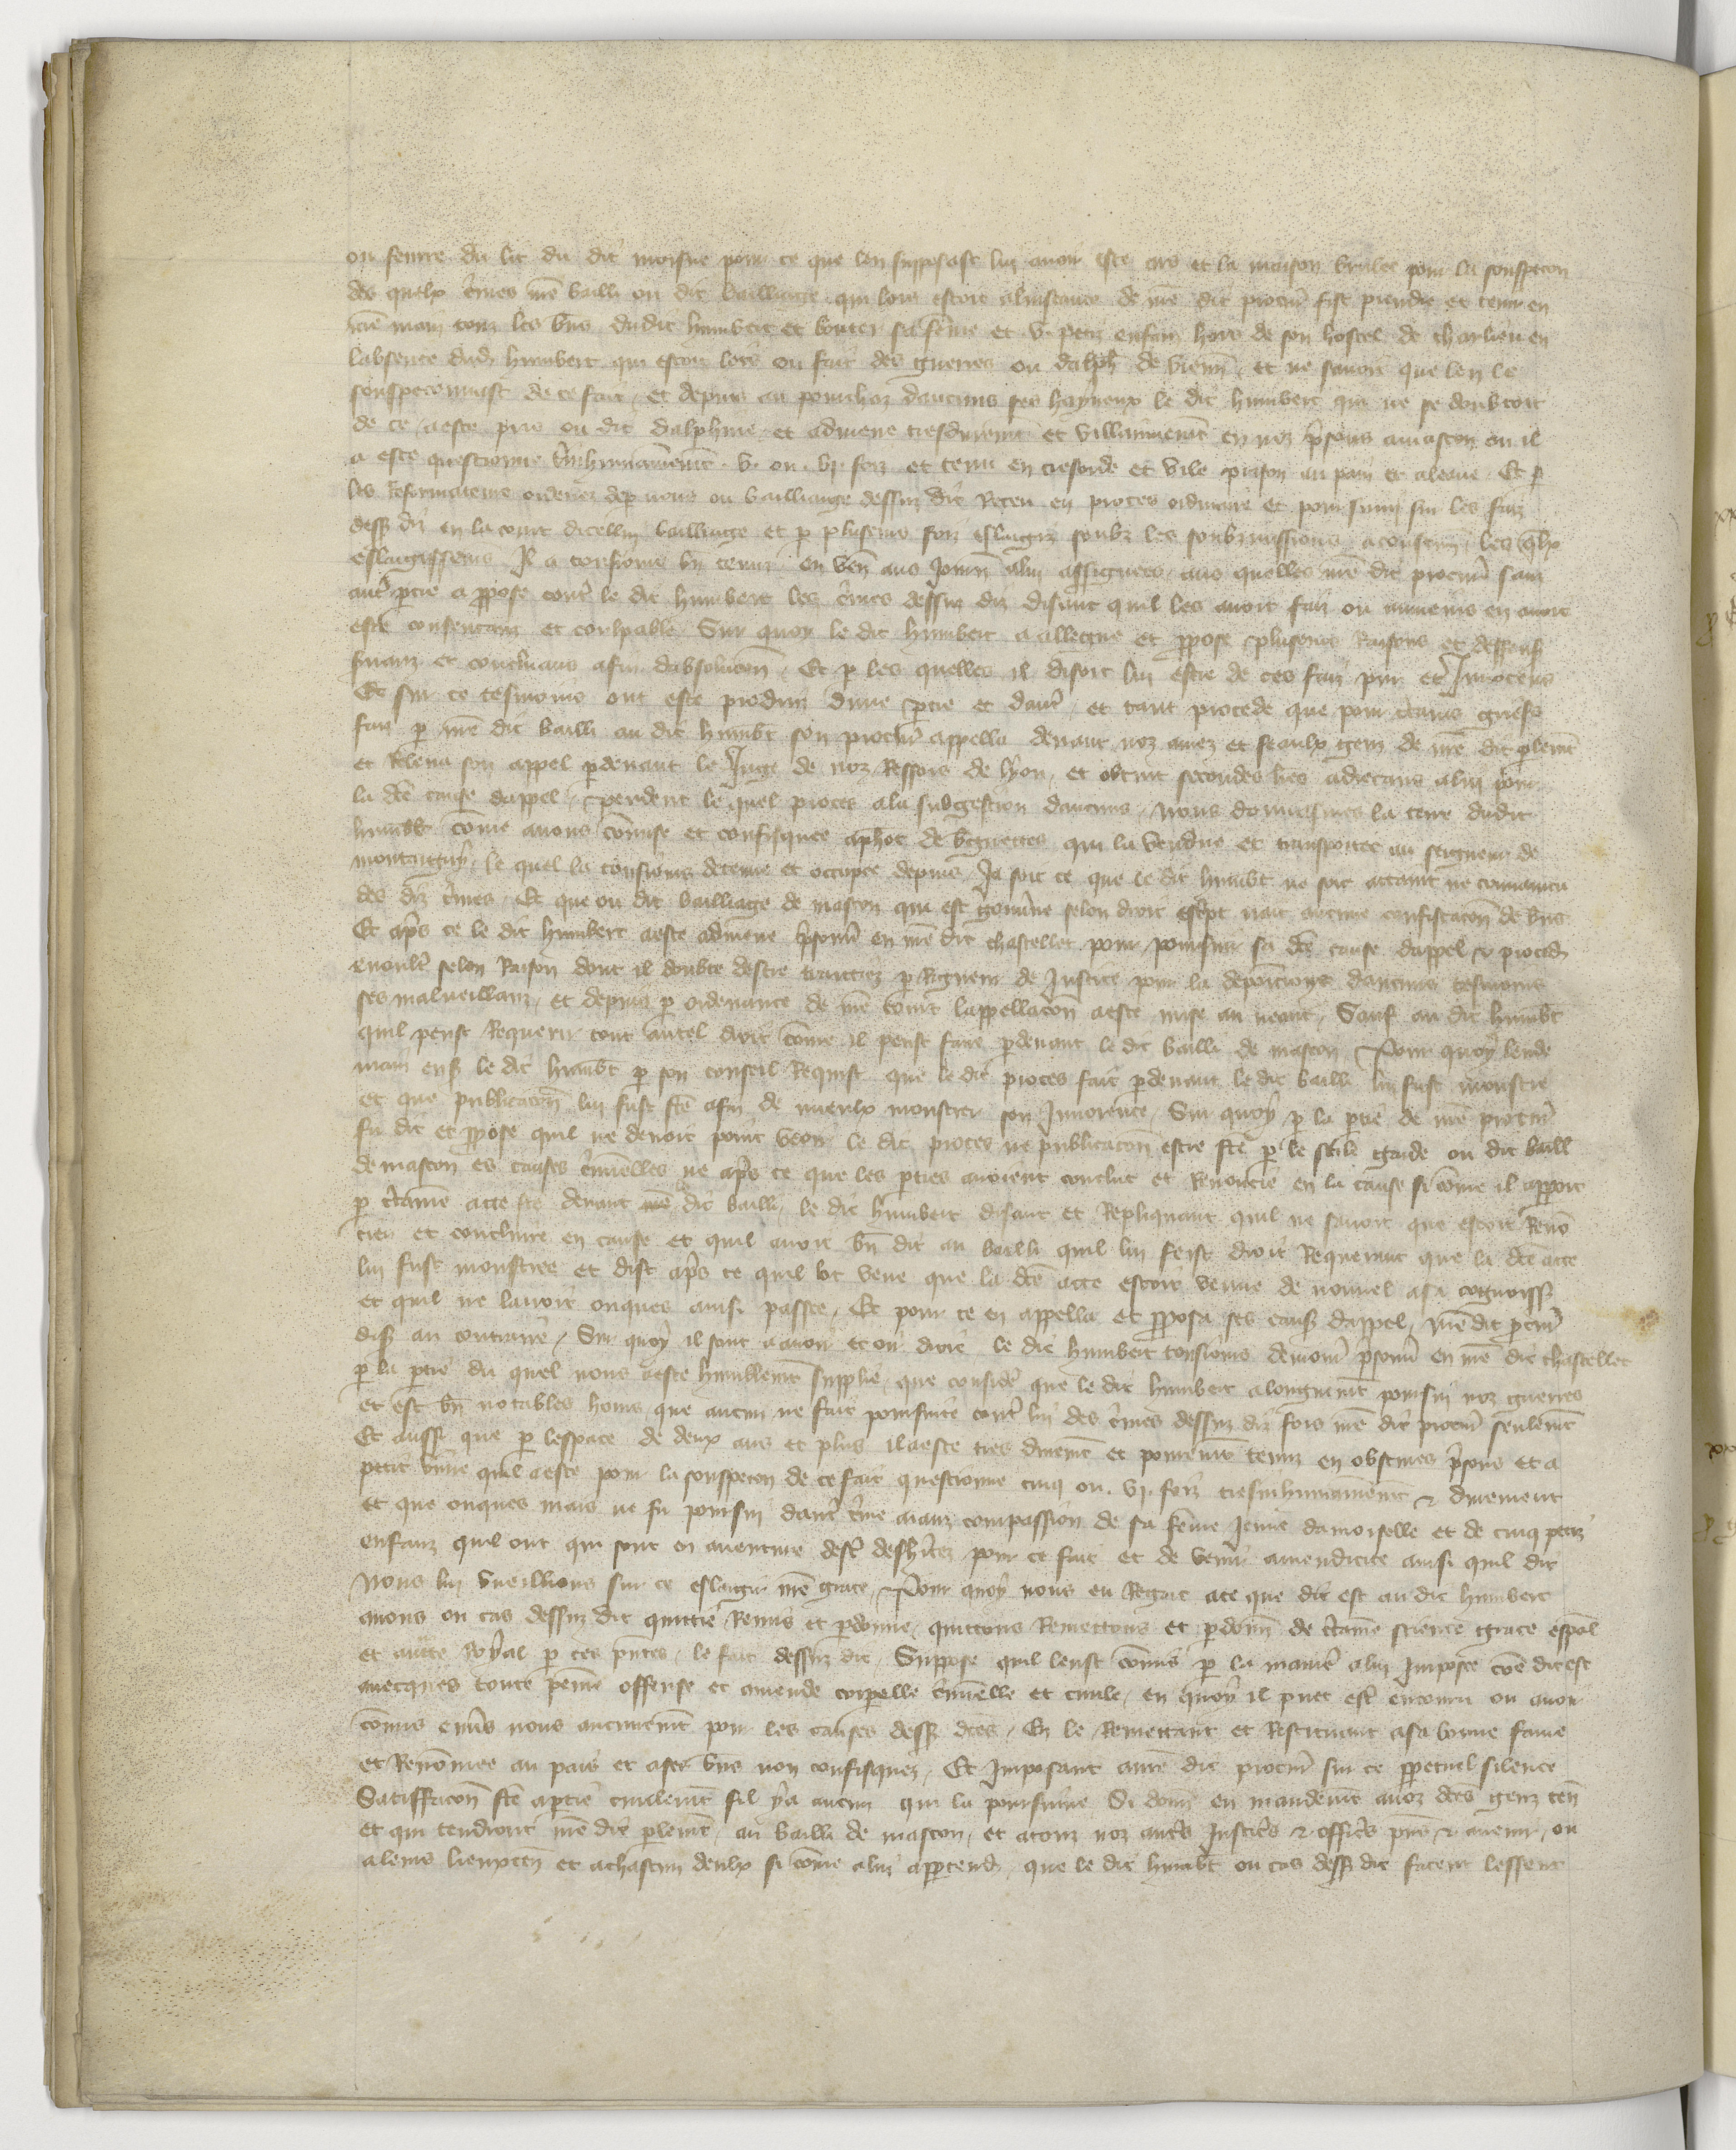 ou feurre du lit du dit moisne pour ce que len supposast lui avoir este ars et la maison brulee pour la souspecon
des quelx crimes nre bailli ou dit bailliage qui lors estoit a linstance de nre dit procur fist prendre et tenir en
nre main touz les biens dudit humbert et bouter sa feme et v. petiz enfans hors de son hostel de charlieu en
labsence dud humbert qui estoit lors ou fait des guerres ou dalph de vienn et ne savoit que len le
souspeconnast de ce fait / et depuis au pourchaz daucuns ses hayneux le dit humbert qui ne se doubtoit
de ce a este pris ou dit dalphine / et admene tresdurement et villainement en noz prisons a mascon ou il
a este questionne tresinhumainement v. ou vj. foiz et tenu en tresorde et vile prison au pain et a leaue. Et p
les reformateurs ordenez de p nous ou bailliage dessus dit receu en proces ordinaire et poursuiui sur les faiz
dess diz en la court dicellui bailliage et p plusieurs foiz eslargiz soubz les soubzmissions acoustum / les qlx
eslargissemens il a tousiours bn tenuz en ven aus journ a lui assignees / aus quelles nre dit procur sanz
autre ptie a ppose contre le dit humbert les crimes dessus diz disant quil les avoit faiz ou aumoins en avoit
este consentant et coulpable. Sur quoy le dit humbert a allegue et ppose plusieurs raisons et deffens
finanz et concluans afin dabsolucon / Et p les quelles il disoit lui estre de ces faiz pur et Innocens
Et sur ce tesmoins ont este produiz dune ptie et dautre / et tant procede que pour ctains griefs
faiz p nre dit bailli au dit humbt son procur appella devant noz amez et feaulx genz de nre dit plement
et releva son appel pdevant le Juge de noz ressors de lyon / et obtint secondes lres adrecans a lui pour
la dce cause dappel / pendent le quel proces a la subgestion daucuns / nous donnasmes la terre dudit
humbt come a nous commise et confisquee a phot de bignettes qui la vendue et transportee au seigneur de
montaiguy / le quel la tousiours detenue et occupee depuis / Ja soit ce que le dit humbt ne soit attaint ne convaincu
des diz crimes / Et que ou dit bailliage de mascon qui est gouverne selon droit escript nait aucune confiscacon de biens
Et apres ce le dit humbert a este admene prisonn en nre dit chastellet pour poursuir sa dce cause dappel & proced
en oultre selon raison dont il doubte destre traictiez p rigueur de Justice pour la deposicions daucuns tesmoins
ses malveillanz / et depuis p ordenance de nre court lappellacon a este mise au neant / Sauf au dit humbt
quil peust requerir tout autel droit come il peust faire pdevant le dit bailli de mascon / Pour quoy lende
main ens le dit humbt p son conseil requist que le dit proces fait pdevant le dit bailli lui fust monstre
et que publicacon lui fust fce afin de mieulx monstrer son Innocence / Sur quoy p la ptie de nre procur
fu dit et ppose quil ne devoit point veoir le dit proces ne publicacon estre fce p le stile garde ou dit baill
de mascon es causes criminelles ne apres ce que les pties avoient conclut et renoncie en la cause si come il apparoit
p ctaine acte fce devant nre dit bailli / le dit humbert disant et repliquant quil ne savoit que estoit reno
cier et conclurre en cause et quil avoit bn dit au bailli quil lui feist droit requerant que la dce acte
lui fust monstree et dist apres ce quil lot veue que la dce acte estoit venue de nouvel a sa cognoiss
et quil ne lavoit onques ainsi passee / Et pour ce en appella et pposa ses causs dappel / nre dit procur
dis au contraire / Sur quoy ilz sont a avoir et oir droit / le dit humbert tousiours demour prisonn en nre dit chastellet
p la ptie du quel nous a este humblement supplie / que consider que le dit humbert a longuement poursui noz guerres
et est bn notables homs que aucun ne fait poursuite contre lui des crimes dessus diz fors nre dit procur seulement
Et aussi que p lespace de deux ans et plus il a este tres durement et povrement tenuz en obscures prisons et a
petit vivre quil a este pour la souspecon de ce fait questionne cinq ou vj. foiz tresinhumainement & durement
et que onques mais ne fu poursui dautre crime aianz compassion de sa feme Jeune damoiselle et de cinq petiz
enfanz quil ont qui sont en aventure destre desheritez pour ce fait et de venir a mendicite ainsi quil dit
Nous lui vueillions sur ce eslargir nre grace / Pour quoy nous eu regart a ce que dit est au dit humbert
avons ou cas dessus dit quittie remis et pdonne / quittons remettons et pdonn de ctaine science grace espal
et aucte royal p ces pntes / le fait dessus dit / Suppose quil leust comis p la maniere a lui Imposee coe dit est
avecques toute peine offense et amende corporelle criminelle et civile / en quoy il puet estre encouru ou avoir
comis envs nous aucunement pour les causes dess dces / En le remettant et restituant a sa bonne fame
et renommee au pais et a ses biens non confisquez / Et Imposant a nre dit procur sur ce ppetuel silence
Satiffacon fce a ptie civilement sil y a aucun qui la poursuive Si donn en mandement a noz dces genz ten
et qui tendront nre dit plement / au bailli de mascon / et a touz noz autres Justic & offic prs & avenir / ou
a leurs lieuxten et a chascun deulx si come a lui apptend / que le dit humbt ou cas dess dit facent lessent